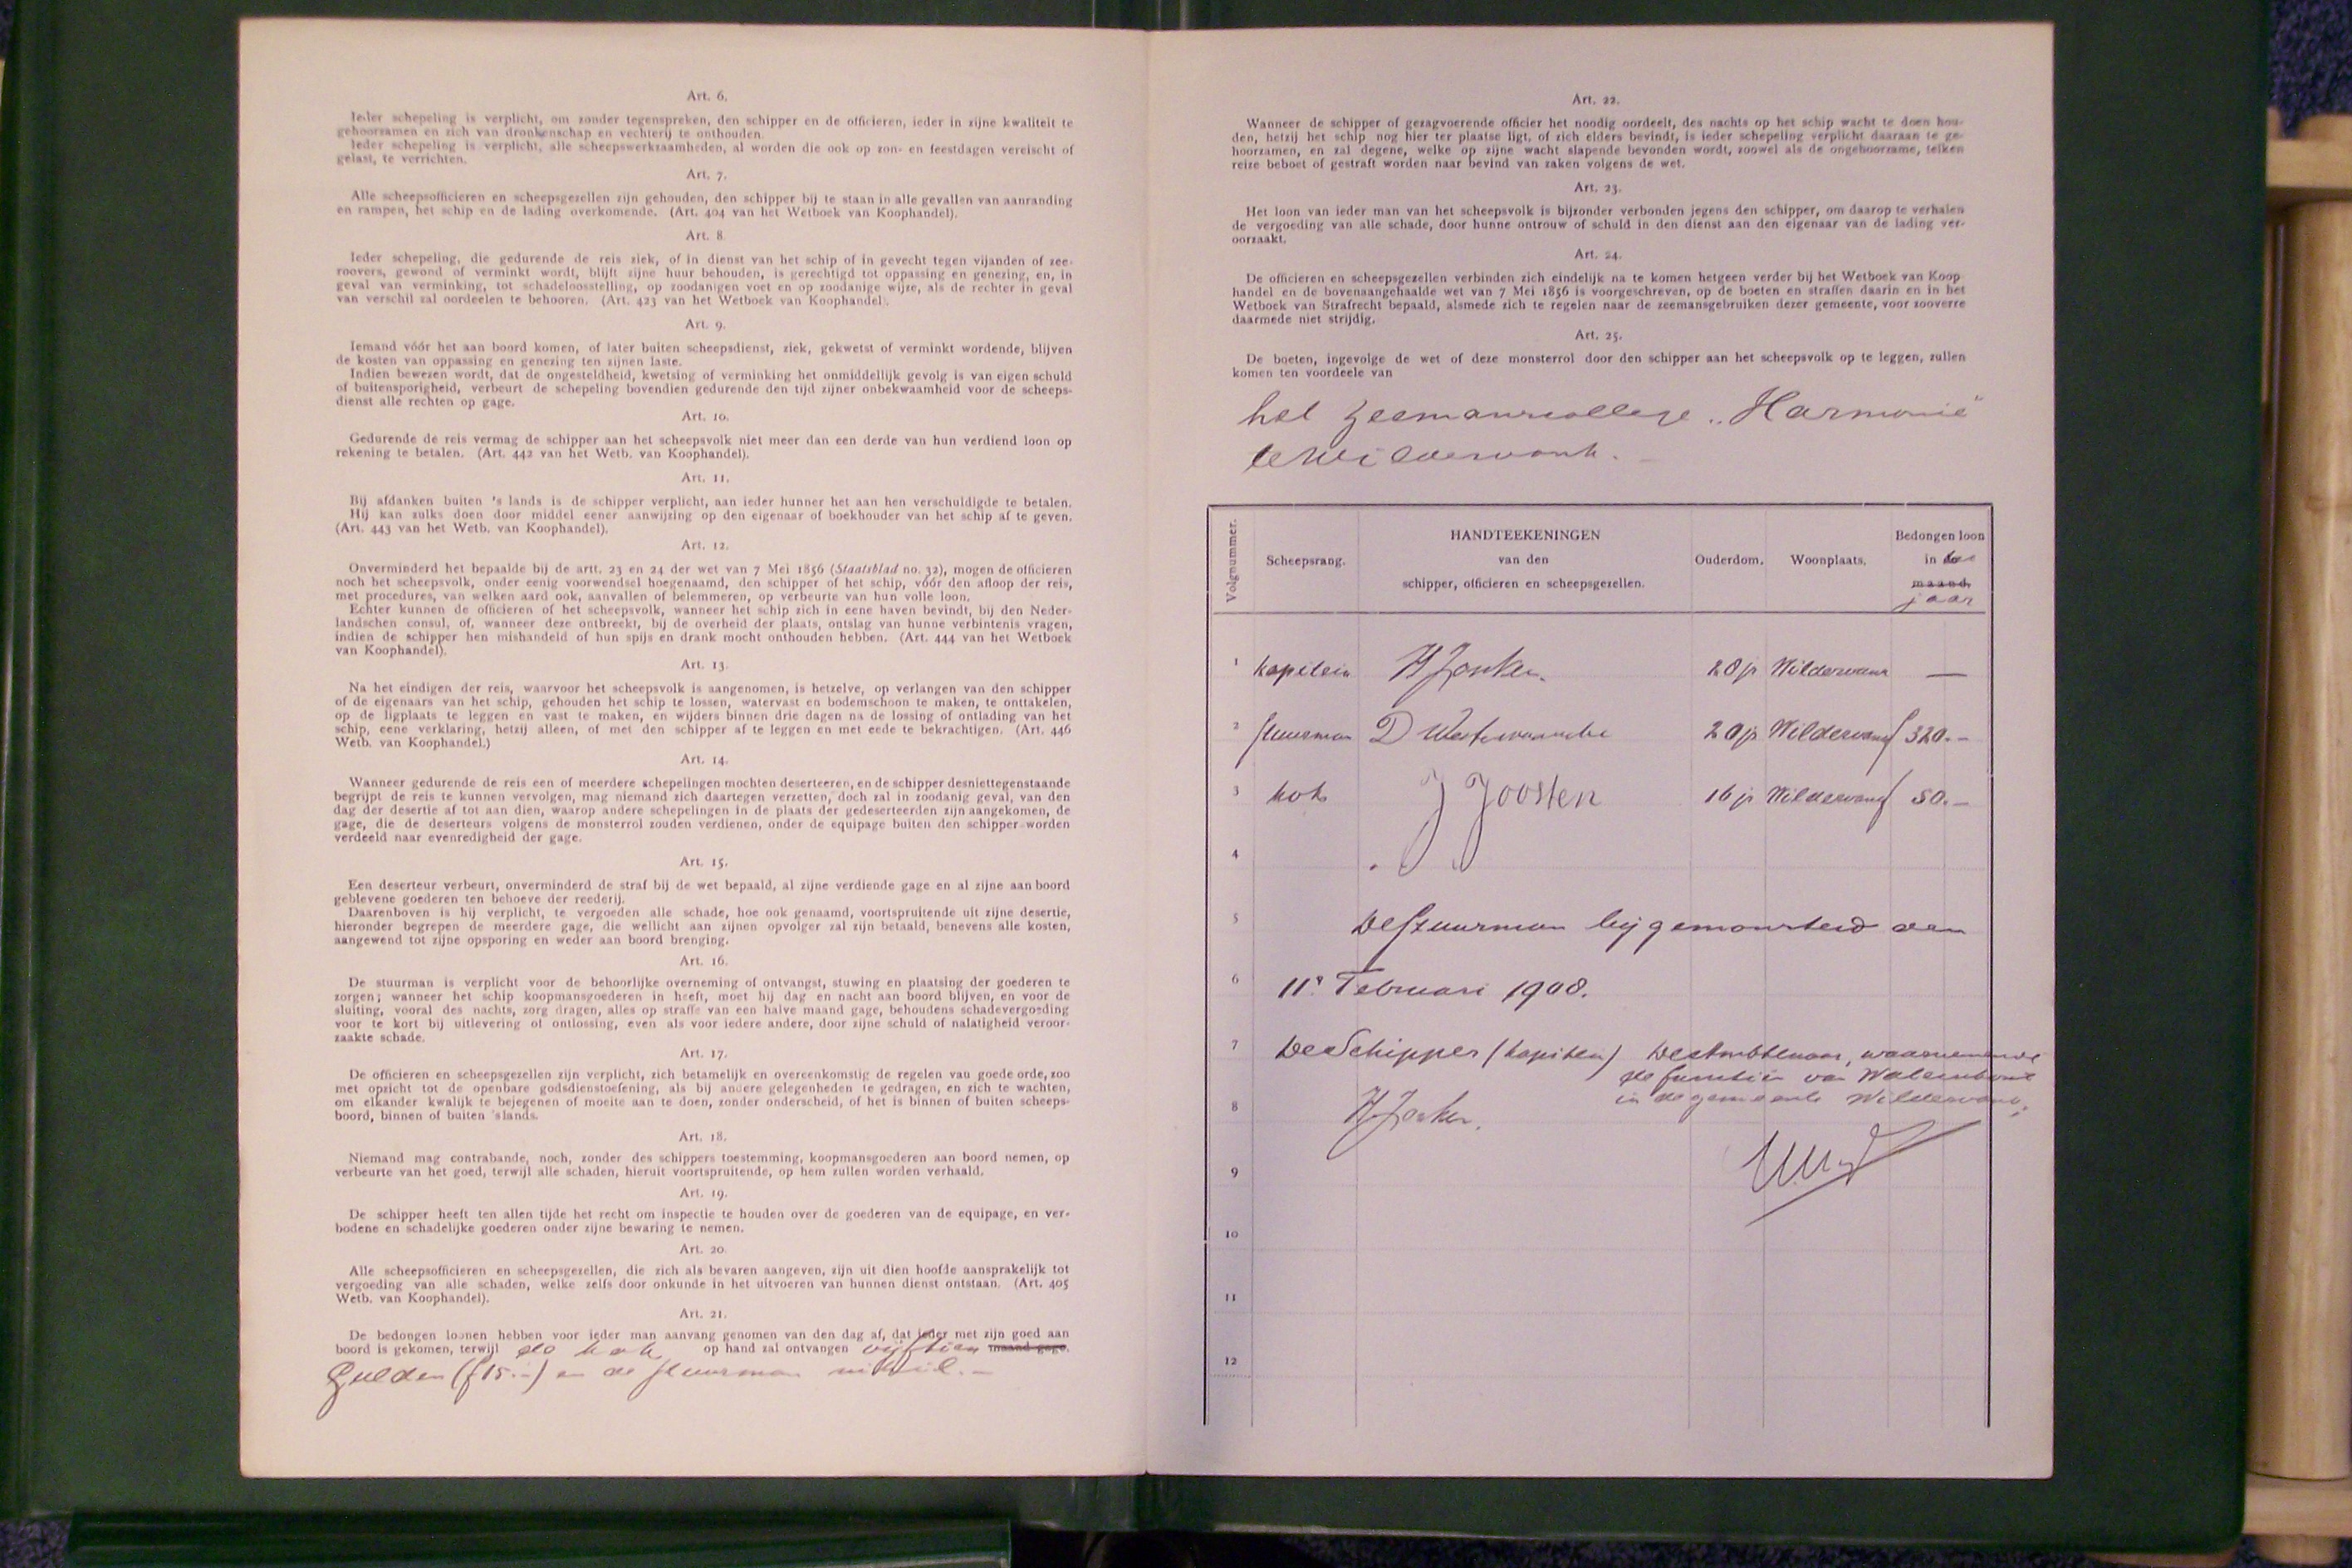 Art. 6.
Ieder schepeling is verplicht, om zonder tegenspreken, den schipper en de officieren, ieder in zijne kwaliteit te
gehoorzamen en zich van dronkenschap en vechterij te onthouden.
Ieder schepeling is verplicht, alle scheepswerkzaamheden, al worden die ook op zon- en feestdagen vereischt of
gelast, te verrichten.
Art. 7.
Alle scheepsofficieren en scheepsgezellen zijn gehouden, den schipper bij te staan in alle gevallen van aanranding
en rampen, het schip en de lading overkomende. (Art. 404 van het Wetboek van Koophandel).
Art. 8.
Ieder schepeling, die gedurende de reis ziek, of in dienst van het schip of in gevecht tegen vijanden of zee-
roovers, gewond of verminkt wordt, blijft zijne huur behouden, is gerechtigd tot oppassing en genezing, en, in
geval van verminking, tot schadeloosstelling, op zoodanigen voet en op zoodanige wijze, als de rechter in geval
van verschil zal oordeelen te behooren. (Art. 423 van het Wetboek van Koophandel).
Art. 9.
Iemand vóór het aan boord komen, of later buiten scheepsdienst, ziek, gekwetst of verminkt wordende, blijven
de kosten van oppassing en genezing ten zijnen laste.
Indien bewezen wordt, dat de ongesteldheid, kwetsing of verminking het onmiddellijk gevolg is van eigen schuld
of buitensporigheid, verbeurt de schepeling bovendien gedurende den tijd zijner onbekwaamheid voor de scheeps-
dienst alle rechten op gage.
Art. 10.
Gedurende de reis vermag de schipper aan het scheepsvolk niet meer dan een derde van hun verdiend loon op
rekening te betalen. (Art. 442 van het Wetb. van Koophandel).
Art. 11.
Bij afdanken buiten 's lands is de schipper verplicht, aan ieder hunner het aan hen verschuldigde te betalen.
Hij kan zulks doen door middel eener aanwijzing op den eigenaar of boekhouder van het schip af te geven.
(Art. 443 van het Wetb. van Koophandel).
Art. 12.
Onverminderd het bepaalde bij de artt. 23 en 24 der wet van 7 Mei 1856 (Staatsblad no. 32), mogen de officieren
noch het scheepsvolk, onder eenig voorwendsel hoegenaamd, den schipper of het schip, vóór den afloop der reis,
met procedures, van welken aard ook, aanvallen of belemmeren, op verbeurte van hun volle loon.
Echter kunnen de officieren of het scheepsvolk, wanneer het schip zich in eene haven bevindt, bij den Neder-
landschen consul, of, wanneer deze ontbreekt, bij de overheid der plaats, ontslag van hunne verbintenis vragen,
indien de schipper hen mishandeld of hun spijs en drank mocht onthouden hebben. (Art. 444 van het Wetboek
van Koophandel).
Art. 13.
Na het eindigen der reis, waarvoor het scheepsvolk is aangenomen, is hetzelve, op verlangen van den schipper
of de eigenaars van het schip, gehouden het schip te lossen, watervast en bodemschoon te maken, te onttakelen,
op de ligplaats te leggen en vast te maken, en wijders binnen drie dagen na de lossing of ontlading van het
schip, eene verklaring, hetzij alleen, of met den schipper af te leggen en met eede te bekrachtigen. (Art. 446
Wetb. van Koophandel.)
Art. 14.
Wanneer gedurende de reis een of meerdere schepelingen mochten deserteeren, en de schipper desniettegenstaande
begrijpt de reis te kunnen vervolgen, mag niemand zich daartegen verzetten, doch zal in zoodanig geval, van den
dag der desertie af tot aan dien, waarop andere schepelingen in de plaats der gedeserteerden zijn aangekomen, de
gage, die de deserteurs volgens de monsterrol zouden verdienen, onder de equipage buiten den schipper worden
verdeeld naar evenredigheid der gage.
Art. 15.
Een deserteur verbeurt, onverminderd de straf bij de wet bepaald, al zijne verdiende gage en al zijne aan boord
geblevene goederen ten behoeve der reederij.
Daarenboven is hij verplicht, te vergoeden alle schade, hoe ook genaamd, voortspruitende uit zijne desertie,
hieronder begrepen de meerdere gage, die wellicht aan zijnen opvolger zal zijn betaald, benevens alle kosten,
aangewend tot zijne opsporing en weder aan boord brenging.
Art. 16.
De stuurman is verplicht voor de behoorlijke overneming of ontvangst, stuwing en plaatsing der goederen te
zorgen; wanneer het schip koopmansgoederen in heeft, moet hij dag en nacht aan boord blijven, en voor de
sluiting, vooral des nachts, zorg dragen, alles op straffe van een halve maand gage, behoudens schadevergoeding
voor te kort bij uitlevering of ontlossing, even als voor iedere andere, door zijne schuld of nalatigheid veroor-
zaakte schade.
Art. 17.
De officieren en scheepsgezellen zijn verplicht, zich betamelijk en overeenkomstig de regelen van goede orde, zoo
met opzicht tot de openbare godsdienstoefening, als bij andere gelegenheden te gedragen, en zich te wachten,
om elkander kwalijk te bejegenen of moeite aan te doen, zonder onderscheid, of het is binnen of buiten scheeps-
boord, binnen of buiten 's lands.
Art. 18.
Niemand mag contrabande, noch, zonder des schippers toestemming, koopmansgoederen aan boord nemen, op
verbeurte van het goed, terwijl alle schaden, hieruit voortspruitende, op hem zullen worden verhaald.
Art. 19.
De schipper heeft ten allen tijde het recht om inspectie te houden over de goederen van de equipage, en ver-
bodene en schadelijke goederen onder zijne bewaring te nemen.
Art. 20.
Alle scheepsofficieren en scheepsgezellen, die zich als bevaren aangeven, zijn uit dien hoofde aansprakelijk tot
vergoeding van alle schaden, welke zelfs door onkunde in het uitvoeren van hunnen dienst ontstaan. (Art. 405
Wetb. van Koophandel).
Art. 21.
De bedongen loonen hebben voor ieder man aanvang genomen van den dag af, dat ieder met zijn goed aan
boord is gekomen, terwijl de kok op hand zal ontvangen vijftien maand gage.
Gulden (f 15.-) en de stuurman nihil.-
Art. 22.
Wanneer de schipper of gezagvoerende officier het noodig oordeelt, des nachts op het schip wacht te doen hou-
den, hetzij het schip nog hier ter plaatse ligt, of zich elders bevindt, is ieder schepeling verplicht daaraan te ge-
hoorzamen, en zal degene, welke op zijne wacht slapende bevonden wordt, zoowel als de ongehoorzame, telken
reize beboet of gestraft worden naar bevind van zaken volgens de wet.
Art. 23.
Het loon van ieder man van het scheepsvolk is bijzonder verbonden jegens den schipper, om daarop te verhalen
de vergoeding van alle schade, door hunne ontrouw of schuld in den dienst aan den eigenaar van de lading ver-
oorzaakt.
Art. 24.
De officieren en scheepsgezellen verbinden zich eindelijk na te komen hetgeen verder bij het Wetboek van Koop-
handel en de bovenaangehaalde wet van 7 Mei 1856 is voorgeschreven, op de boeten en straffen daarin en in het
Wetboek van Strafrecht bepaald, alsmede zich te regelen naar de zeemansgebruiken dezer gemeente, voor zooverre
daarmede niet strijdig.
Art. 25.
De boeten, ingevolge de wet of deze monsterrol door den schipper aan het scheepsvolk op te leggen, zullen
komen ten voordeele van
het zeemanscollege „Harmonie"
te Wildervank.
Volgnummer. Scheepsrang. HANDTEEKENINGEN van den schipper, officieren en scheepsgezellen. Ouderdom. Woonplaats. Bedongen loon in
maand,
jaar
1 kapitein H Jonker. 28 jr Wildervank —
2 stuurman D Westerwaarde 20 jr Wildervank f 320.-
3 kok J Joosten 16 jr Wildervank f 50.-
4
5 De stuurman bijgemonsterd den
6 11e Februari 1908.
7 De Schipper (kapitein) De Ambtenaar, waarnemende
de functiën van Waterschout
in de gemeente Wildervank,
8 H Jonker.
9
10
11
12